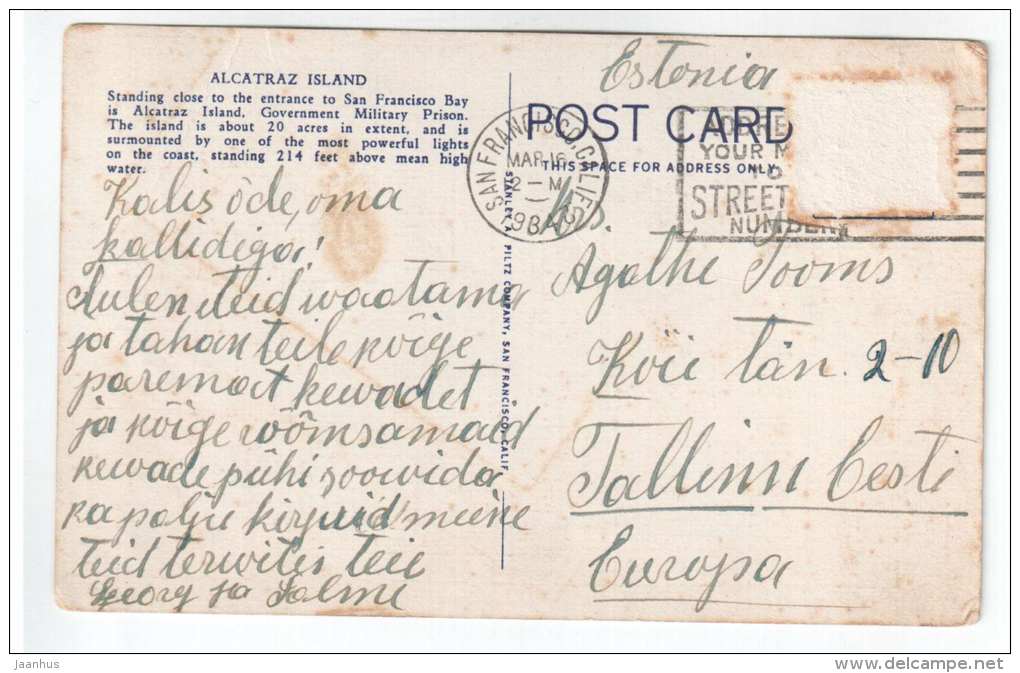 ALCATRAZ ISLAND
Standing close to the entrance to San Francisco Bay
is Alcatraz Island, Government Military Prison.
The island is about 20 acres in extent, and is
surmounted by one of the most powerful lights
on the coast, standing 214 feet above mean high
water.
Kalis õde, oma
kallidega!
Tulen teid waatama
ja tahan teile kõige
paremat kewadet
ja kõige rõõmsamaid
kewade pühi soowida
ka palju kirjuid mune
teid terwites teie
Georg ja Salme
STANLEY A. PILTZ COMPANY, SAN FRANCISCO, CALIF
Estonia
POST CARD
THIS SPACE FOR ADDRESS ONLY
SAN FRANCISCO, CALIF.
MAR 16
2 - M
YOUR M
TO
STREET
NUMBER
Agathe Tooms
Köie tän. 2-10
Tallinn Eesti
Europa
Jaanhus
www.delcampe.net